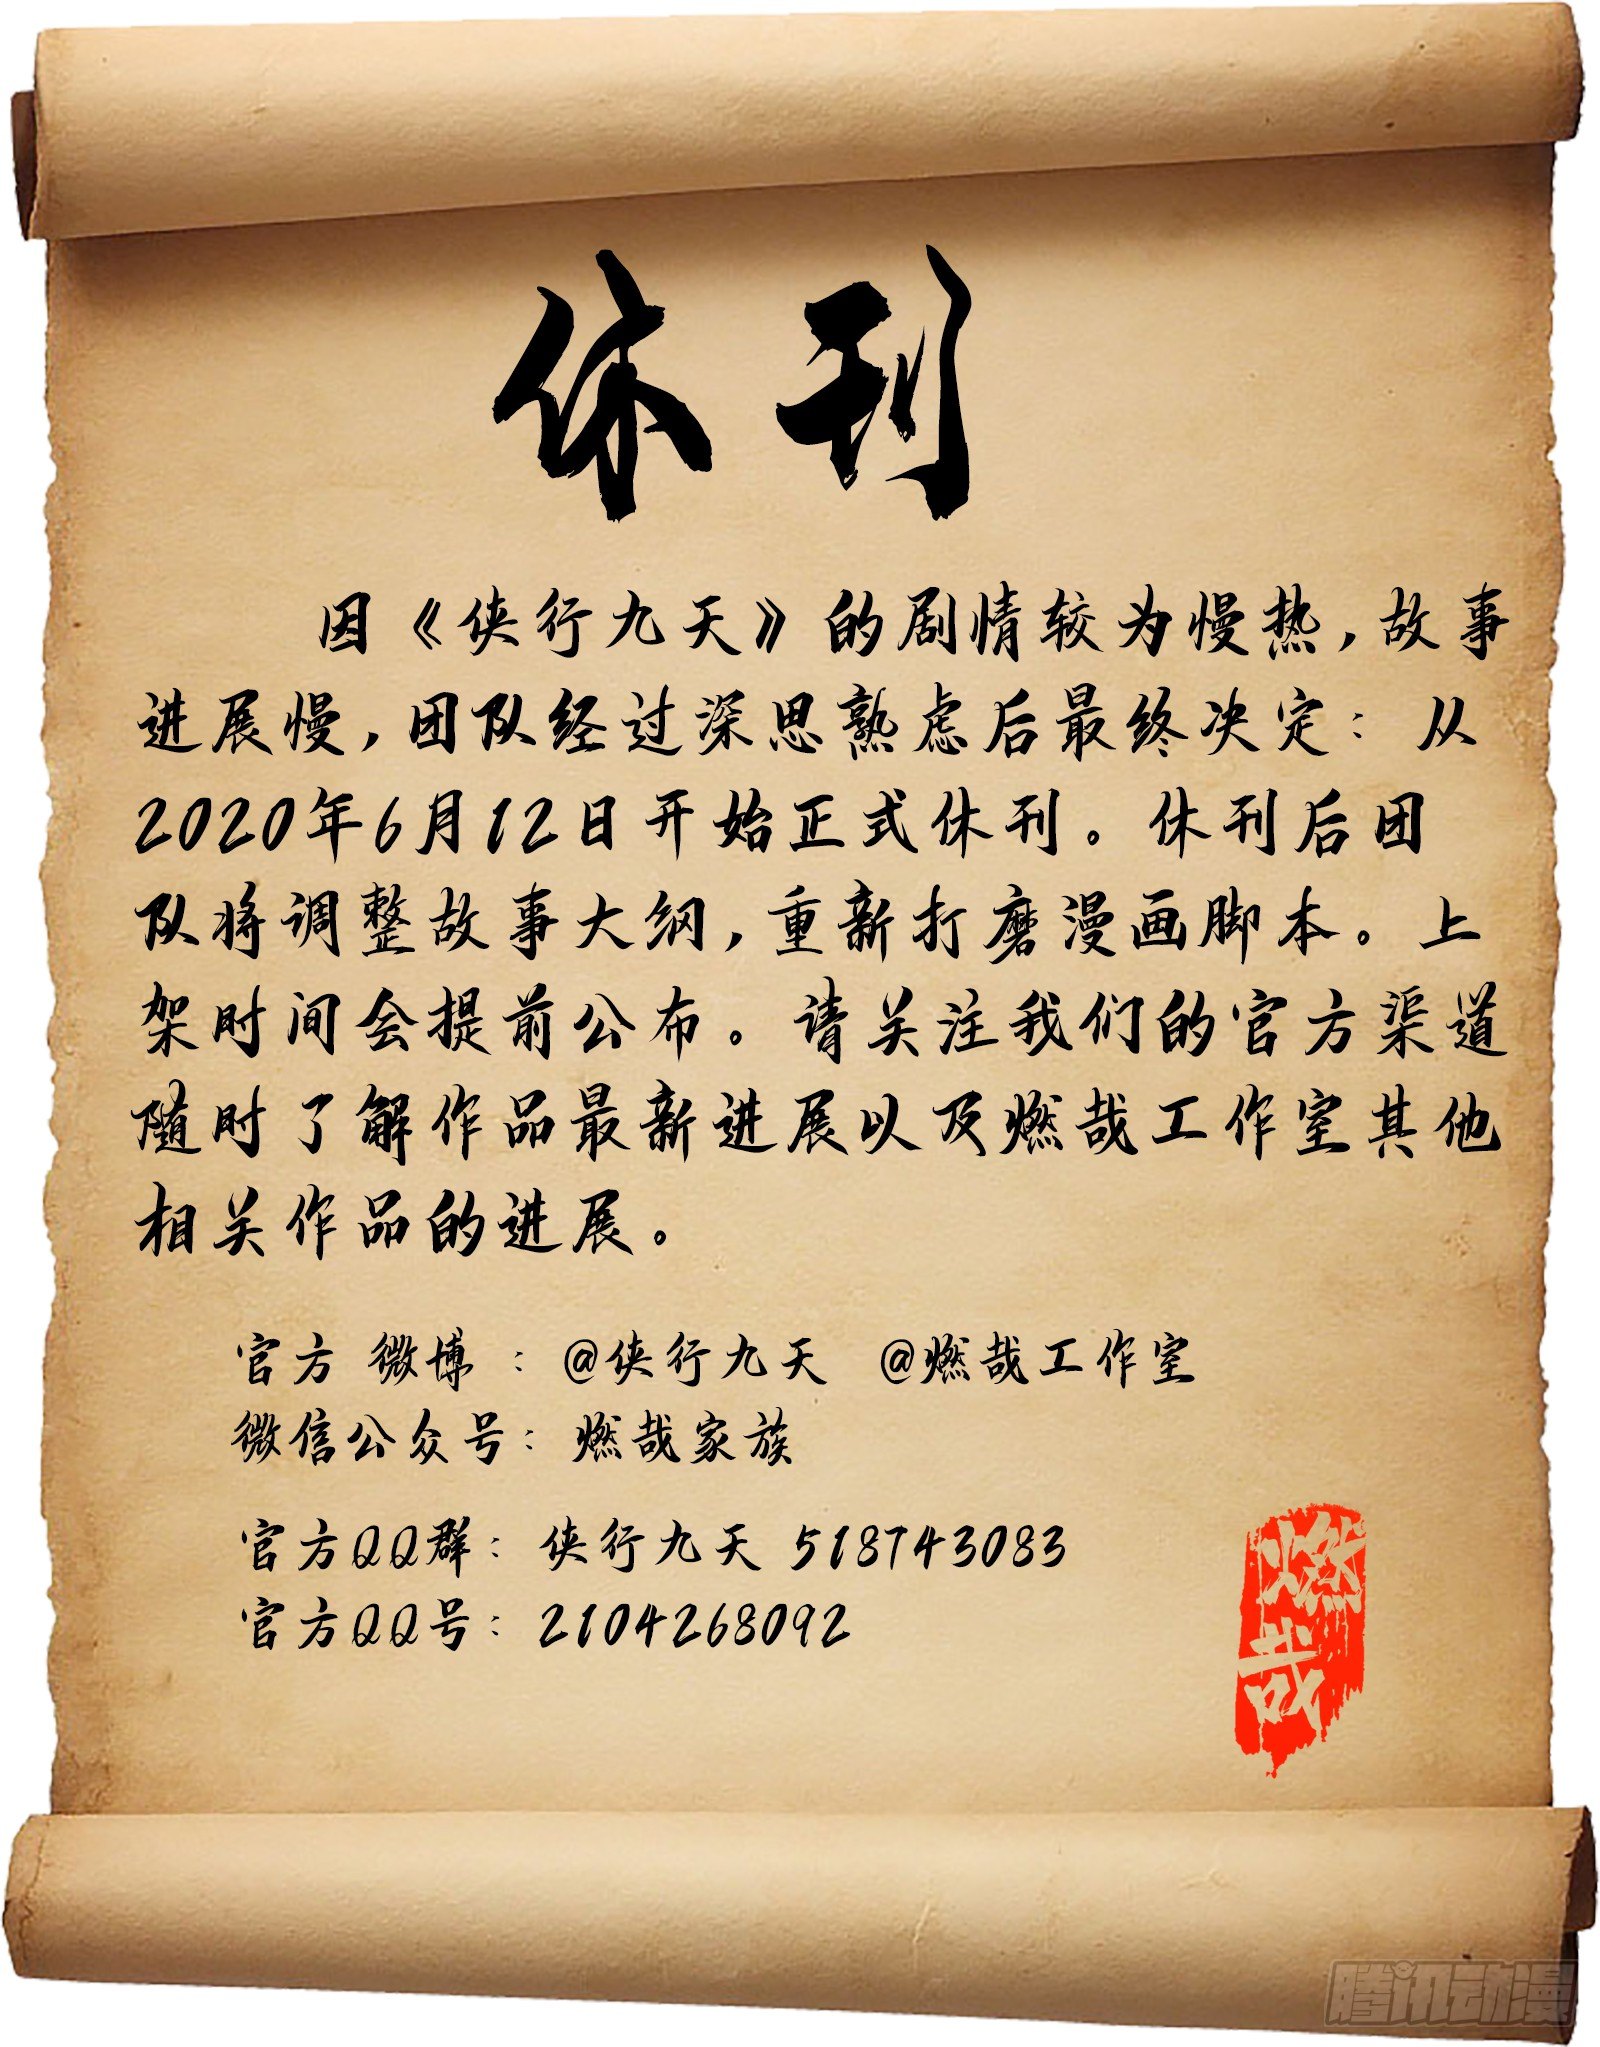 休刊
因《侠行九天》的剧情较为慢热,故事
进展慢,团队经过深思熟虑后最终决定: 从
2020年6月12日开始正式休刊。休刊后团
队将调整故事大纲,重新打磨漫画脚本。上
架时间会提前公布。请关注我们的官方渠道
随时了解作品最新进展以及燃哉工作室其他
相关作品的进展。
官方 微博 : @侠行九天 @燃哉工作室
微信公众号: 燃哉家族
官方QQ群: 侠行九天 518743083
官方QQ号: 2104268092
燃哉
腾讯动漫